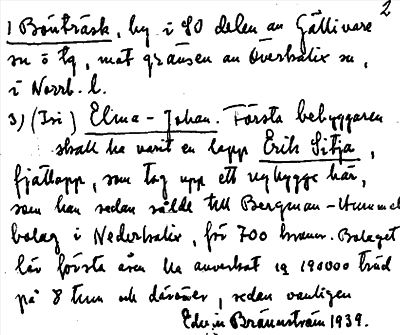 2
1 Bönträsk, by i SO delen av Gällivare
sn o tg, mot gränsen av Överkalix sn,
i Norrb. l.
3) (Isi) Elina-Johan. Första bebyggaren
skall ha varit en lapp Erik Sitja,
fjällapp, som tog upp ett nybygge här,
som han sedan sålde till Bergman-Hummel
bolag i Nederkalix, för 700 kronor. Bolaget
lär första åren ha avverkat 190000 träd
på 8 tum och däröver, sedan vanligen
Edvin Brännström 1939.